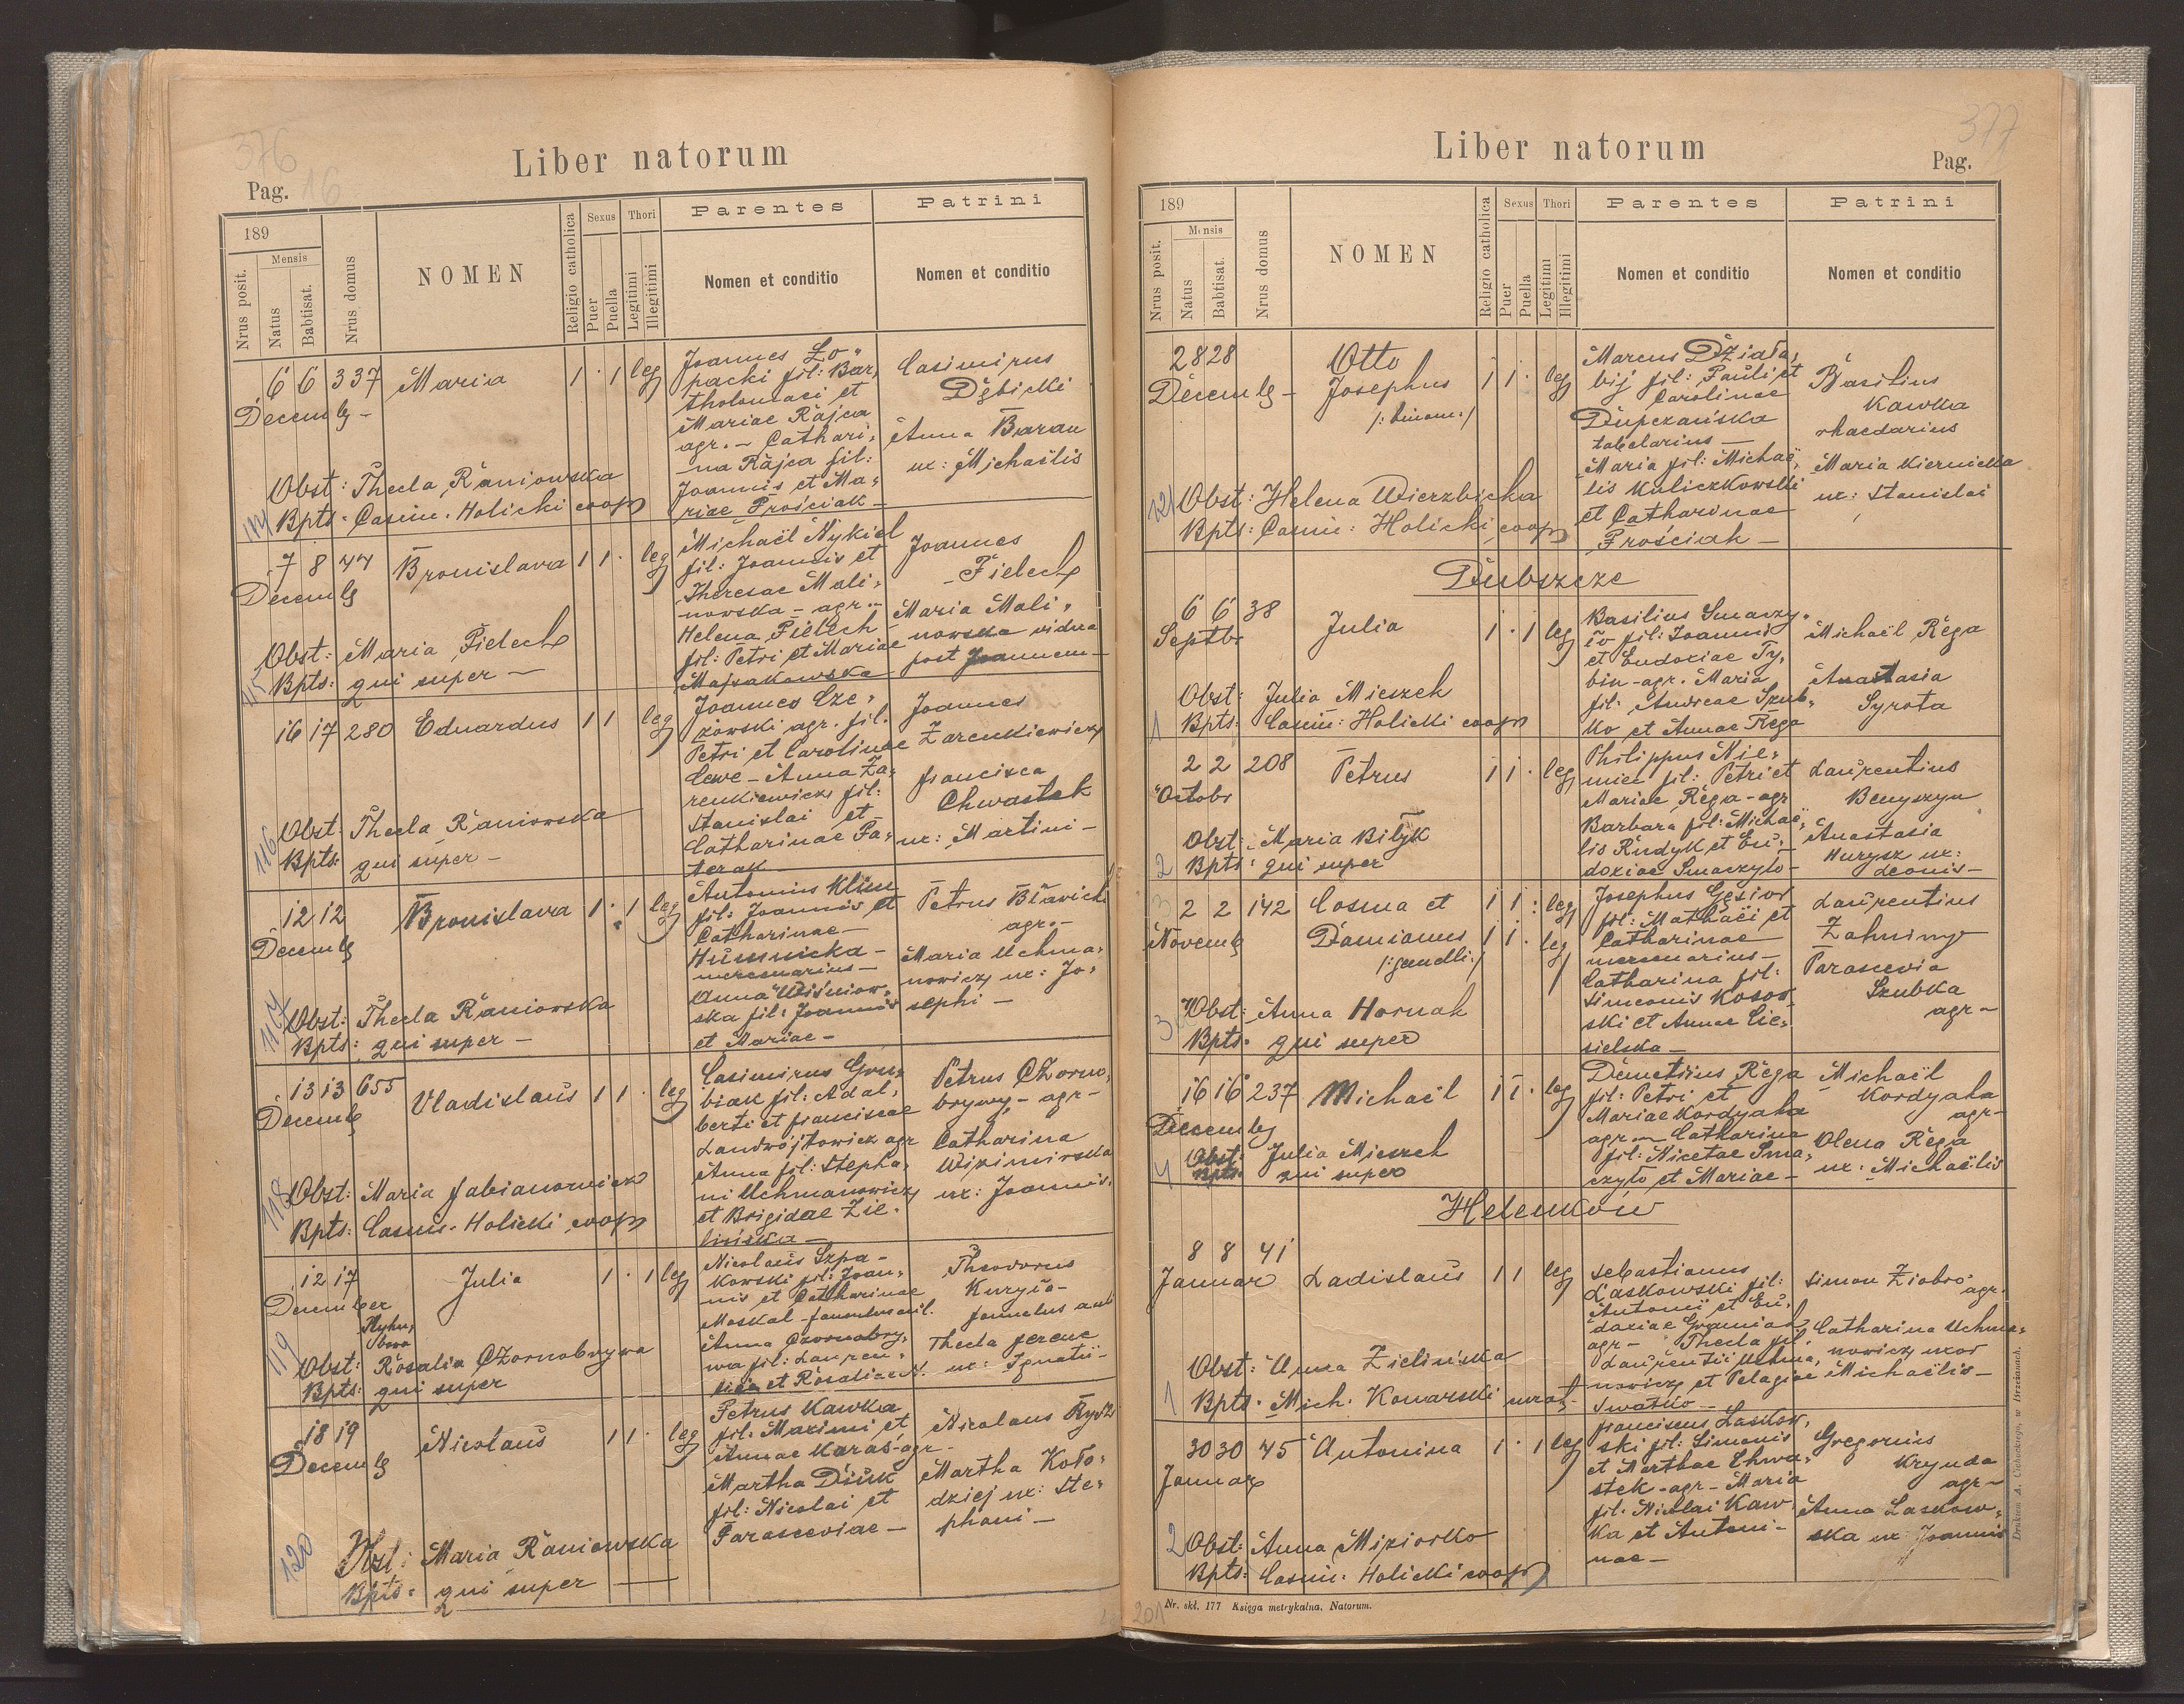 376
Pag. 16
Liber natorum
189
Nrus posit.
Mensis
Natus
Babtisat.
Nrus domus
NOMEN
Religio catholica
Sexus
Puer
Puella
Thori
Legitimi
Illegitimi
Parentes
Nomen et conditio
Patrini
Nomen et conditio
6 6 337 Maria 1 · 1 leg
Decemb –
Joannes Ło„
packi fil: Bar„
tholomaei et
Mariae Rajca
agr. – Cathari„
na Rajca fil:
Joannis et Ma„
riae Prościak –
Casimirus
Dębicki
Anna Baran
ux: Michaëlis
Obst: Thecla Raniowska
114 Bpts: Casim. Holicki coop
7 8 44 Bronislava 1 1 · leg
Decemb
Michaël Nykiel
fil: Joannis et
Theresae Mali„
nowska – agr. –
Helena Pielech
fil: Petri et Mariae
Majsakowska
Joannes
– Pielech
Maria Mali„
nowska vidua
post Joannem –
Obst: Maria Pielech
115 Bpts: qui super –
16 17 280 Eduardus 1 1 leg
Joannes Cze„
żowski agr. fil.
Petri et Carolinae
Cewe – Anna Ża„
renkiewicz fil:
Stanislai et
Catharinae Pa„
terak
Joannes
Żarenkiewicz
Francisca
Chwastek
ux: Martini –
Obst: Thecla Raniowska
116 Bpts: qui super –
12 12 Bronislava 1 · 1 leg
Decemb
Antonius Klim
fil: Joannis et
Catharinae –
Humnicka –
mercenarius –
Anna Wiśniow„
ska fil: Joannis
et Mariae –
Petrus Bławicki
agr. –
Maria Uchma„
nowicz ux: Jo„
sephi –
Obst: Thecla Raniowska
117 Bpts: qui super –
13 13 655 Vladislaus 1 1 · leg
Decemb
Casimirus Gru„
biak fil: Adal„
berti et Franciscae
Landwójtowicz agr
Anna fil: Stepha„
ni Uchmanowicz
et Brigidae Zie„
lińska –
Petrus Czorno„
brywy, – agr –
Catharina
ux: Joannis.
118 Obst: Maria Fabianowicz
Bpts: Casim. Holicki coop
12 17 Julia 1 · 1 leg
December
Nicolaus Szpa –
kowski fil: Joan„
nis et Catharinae
Moskal – famulus aul.
Anna Czornobry„
wa fil: Lauren„
tii et Rosaliae N.
Theodorus
Kuryło –
famulus aul
Thecla Ferenc
ux: Ignatii –
119 Obst: Rosalia Czornobrywa
Bpts: qui super
18 19 Nicolaus 1 1 · leg
Decemb
Petrus Kawka
fil: Maximi et
Annae Karaś – agr –
Martha Diuk
fil: Nicolai et
Parasceviae –
Nicolaus
Martha Koło„
dziej ux: Ste„
phani –
120 Obst: Maria Raniowska
Bpts: qui super
377
Pag.
Liber natorum
189
Nrus posit.
Mensis
Natus
Babtisat.
Nrus domus
NOMEN
Religio catholica
Sexus
Puer
Puella
Thori
Legitimi
Illegitimi
Parentes
Nomen et conditio
Patrini
Nomen et conditio
28 28 Otto 1 1 · leg
Decemb – Josephus
/: binom :/
Marcus Działa„
bij fil: Pauli et
Carolinae
Dupczańska
tabelarius –
Maria fil: Michaë„
lis Kuliczkowski
et Catharinae
Prościak –
Basilius
Kawka
rhaedarius
Maria Kiernicka
ux: Stanislai
121 Obst: Helena Wierzbicka
Bpts: Casim: Holicki coop
Dubszcze
6 6 38 Julia 1 · 1 leg
Septbr
Basilius Smaczy„
ło fil: Joannis
et Eudoxiae Ty„
bin – agr. Maria
fil: Andreae Szub„
ko et Annae Rega
Michaël Rega
Anastasia
Syrota
Obst: Julia Mieszek
1 Bpts: Casim: Holicki coop
2 2 208 Petrus 1 1 · leg
Octobr
Philippus Nie„
miec fil: Petri et
Mariae Rega – agr
Barbara fil: Michaë„
lis Rudyk et Eu„
doxiae Smaczyło –
Laurentius
Benyszyn
Anastasia
Hurysz ux:
Leonis –
Obst: Maria Biłyk
2 Bpts: qui super
3 2 2 142 Cosma et 1 1 : leg
Novemb Damianus 1 1 · leg
/: gemelli :/
Josephus Gęsior
fil: Mathaei et
Catharinae
mercenarius –
Catharina fil:
Simeonis Kosow„
ski et Annae Cie„
sielska –
Laurentius
Zahniny
Parascevia
Szubka
agr –
3 Obst: Anna Hornak
Bpts: qui super
16 16 237 Michaël 1 1 · leg
Decemb
Demetrius Rega
fil: Petri et
Mariae Kordyaka
agr – Catharina
fil: Nicetae Sma„
czyło et Mariae –
Michaël
Kordyaka
agr –
Olena Rega
ux: Michaëlis
Obst: Julia Mieszek
4 Bpts: qui super
Helenków
8 8 41
Januar Ladislaus 1 1 leg
Sebastianus
Laskowski fil:
Antonii et Eu„
doxiae Gremiak
agr – Thecla fil:
Laurentii Uchma„
nowicz et Pelagiae
Swatko –
Simon Ziobro –
agr.
Catharina Uchma„
nowicz uxor
Michaëlis –
Obst: Anna Zielińska
1 Bpts: Mich. Konarski curat.
30 30 45 Antonina 1 · 1 leg
Januar
Franciscus Laskow„
ski fil: Simonis
et Marthae Chwa„
stek – agr – Maria
fil: Nicolai Kaw„
ka et Antoni –
nae –
Gregorius
Krynda
agr –
Anna Laskow„
ska ux: Joannis
2 Obst: Anna Miziorko
Bpts: Casim: Holicki coop
Nr. skł. 177 Księga metrykalna. Natorum.
201